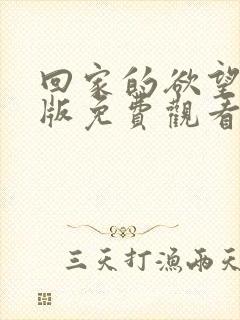 回家的欲望
版免費觀看
三天打漁兩天